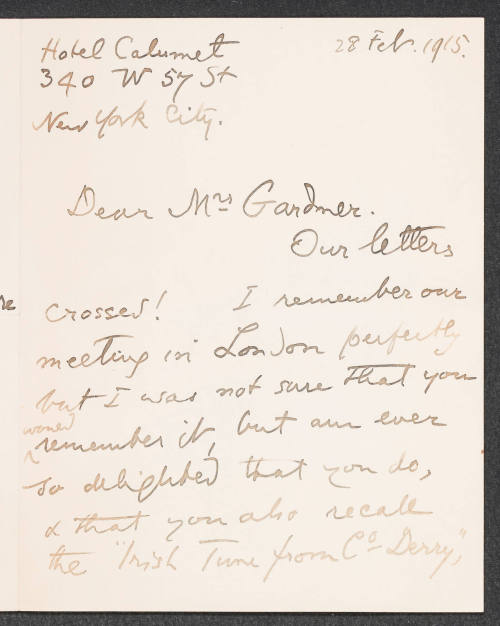 Hotel Calumet
28 Feb. 1915.
340 W 57 St
New York City.
Dear Mrs Gardner.
Our letters
crossed! I remember our
meeting in London perfectly
but I was not sure that you
would
remember it, but am ever
so delighted that you do,
& that you also recall
the "Irish Tune from Co Derry",